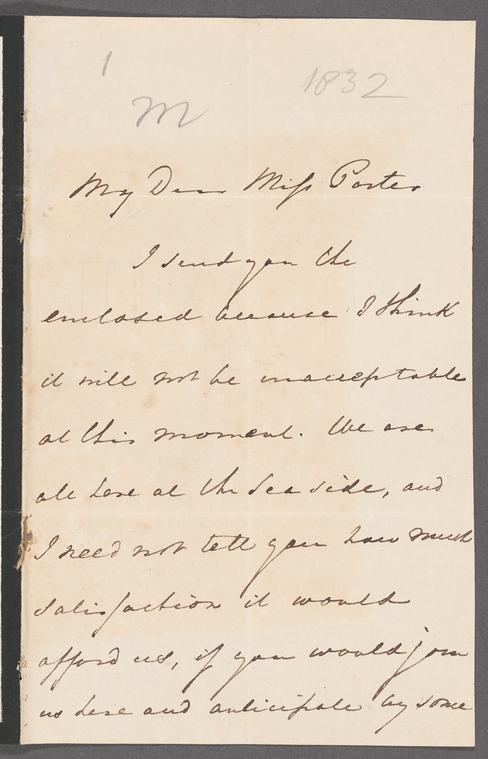 1
1832
M
My Dear Miss Porter
I send you the
enclosed because I think
it will not be unacceptable
at this moment. We are
all here at the Sea side, and
I need not tell you how much
satisfaction it would
afford us, if you would join
us here and anticipate by some